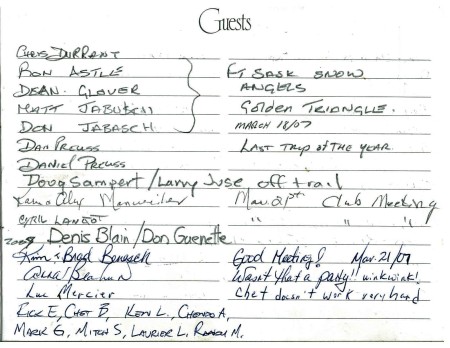 Guests
CHRIS DURRANT
RON ASTLE FT SASK SNOW
DEAN GLOVER ANGELS
MATT JABUSCH GOLDEN TRIANGLE.
DON JABASCH MARCH 18/07
Dan Preuss LAST TRIP of THE YEAR.
Daniel Preuss
Doug Sampert / Larry Juse off trail
Mar. 21st Club Meeting
CYRIL " " "
Denis Blain / Don Guenette
Kim & Brad Good Meeting! Mar. 21/07
Wasn't that a party!! winkwink!
Luc Mercier Chet doesn't work very hard
RICK E, CHET B, KEN L.,
MARK G, MITCH S, LAURIER L.